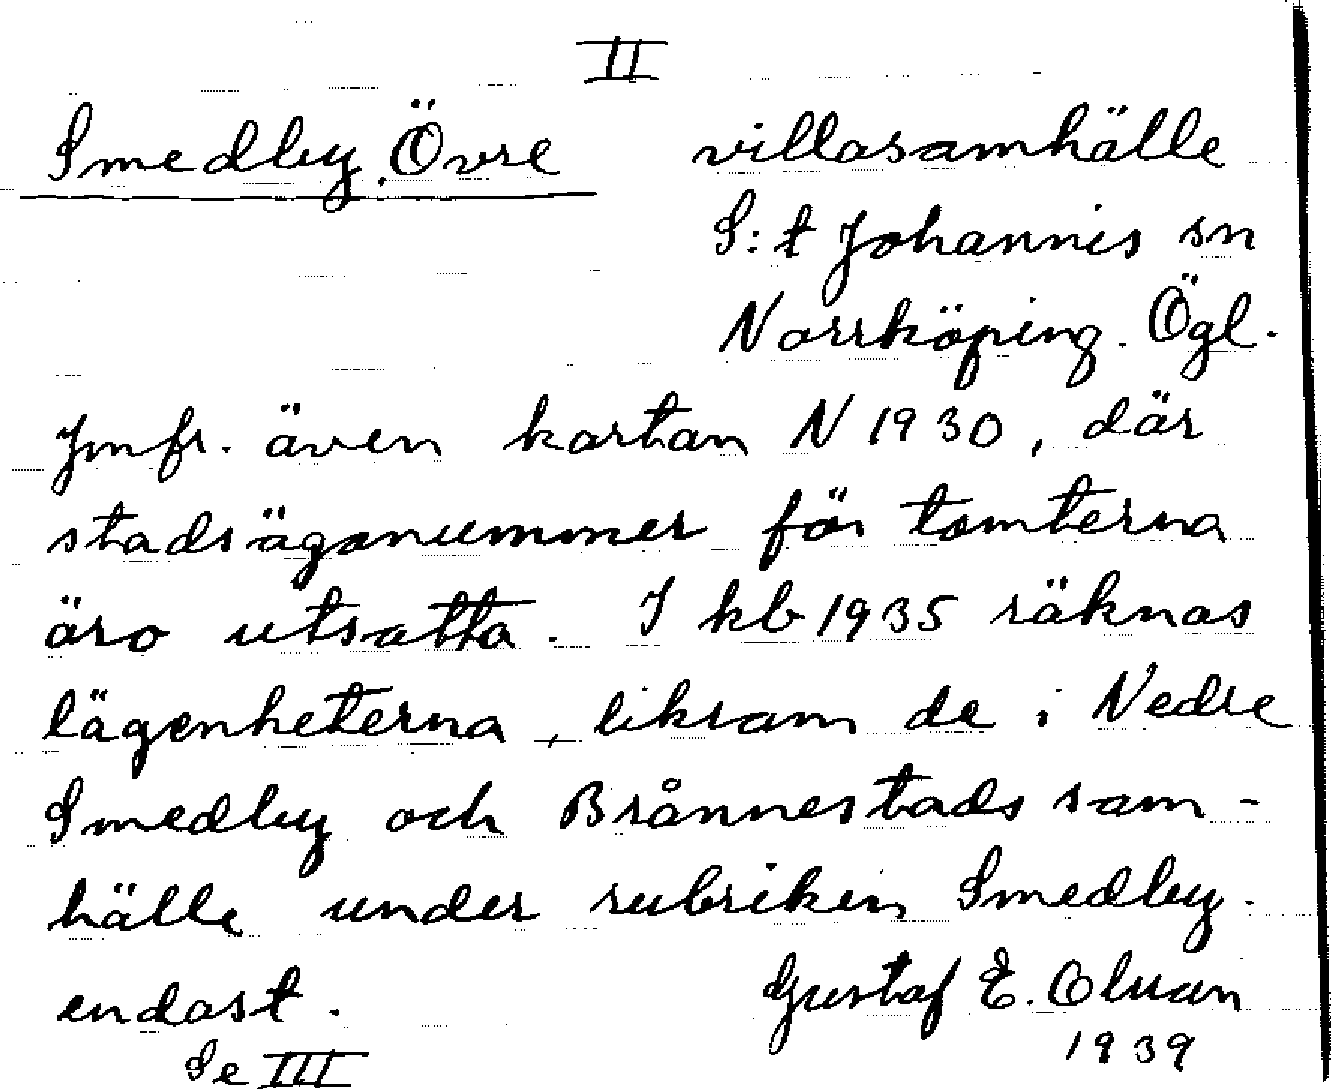 II
Smedby, Övre villasamhälle
S:t Johannis sn
Norrköping. Ögl.
Jmfr. även kartan N 1930, där
stadsägonummer för tomterna
äro utsatta. I kb 1935 räknas
lägenheterna, liksom de i Nedre
Smedby och Brånnestads sam-
hälle under rubriken Smedby
endast. Gustaf E. Olsson
1939
Se III